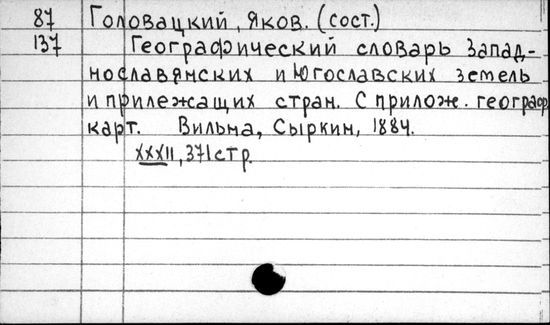 87 Головацкий, Яков. (сост.)
137 Географический словарь Запад-
нославянских и Югославских земель
и прилежащих стран. С прилож. географ.
карт. Вильна, Сыркин, 1884.
XXXII, 371 стр.